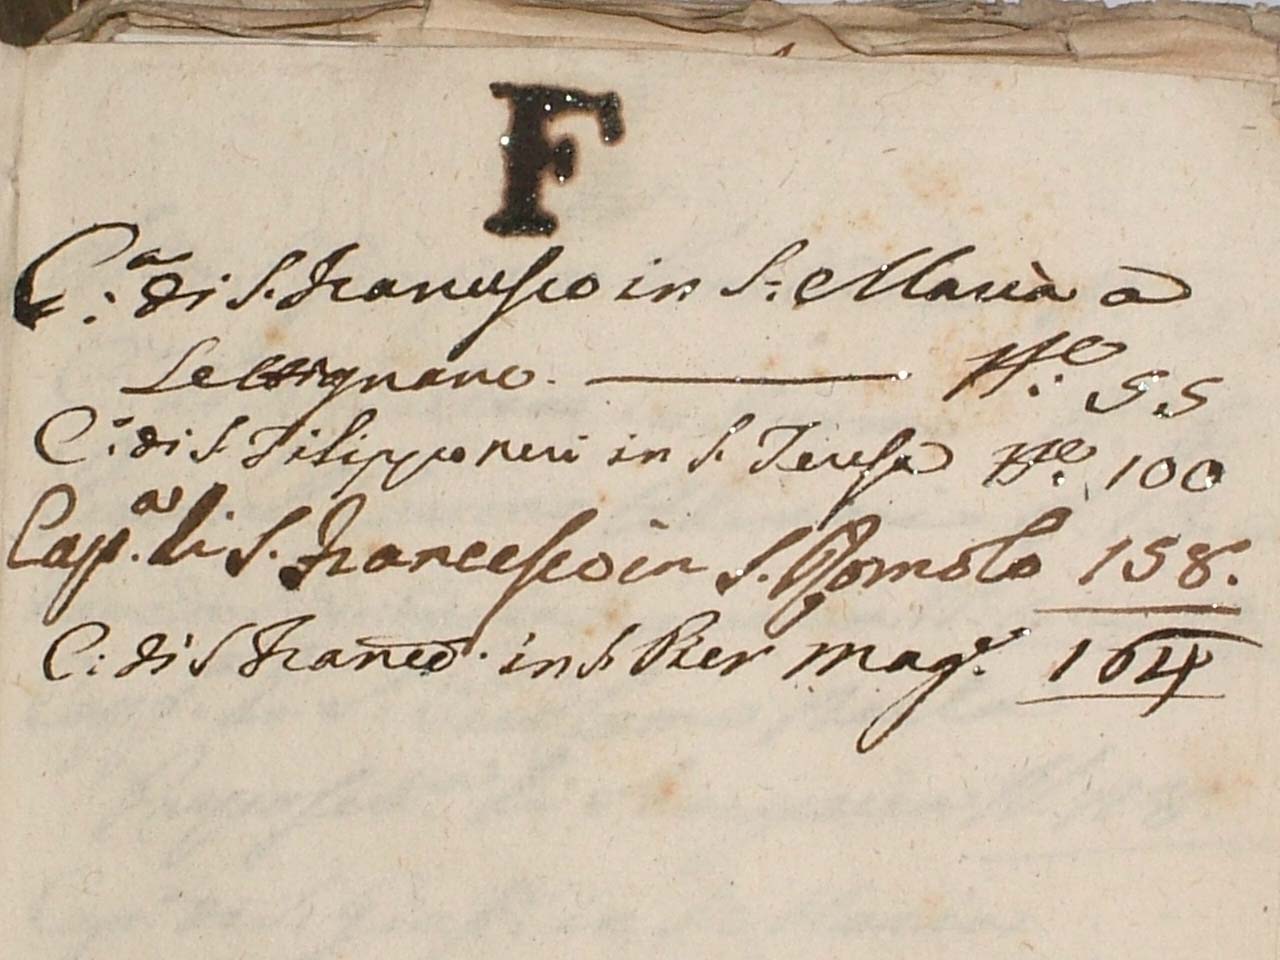 F
C.ª di S. Francesco in S. Maria a
Settignano. N.º 55
C. di S Filippo neri in S. Teresa N.º 100
Cap.ª di S. Francesco in S. Romolo 158.
C: di S Franc.º in S. Pier mag.e 164